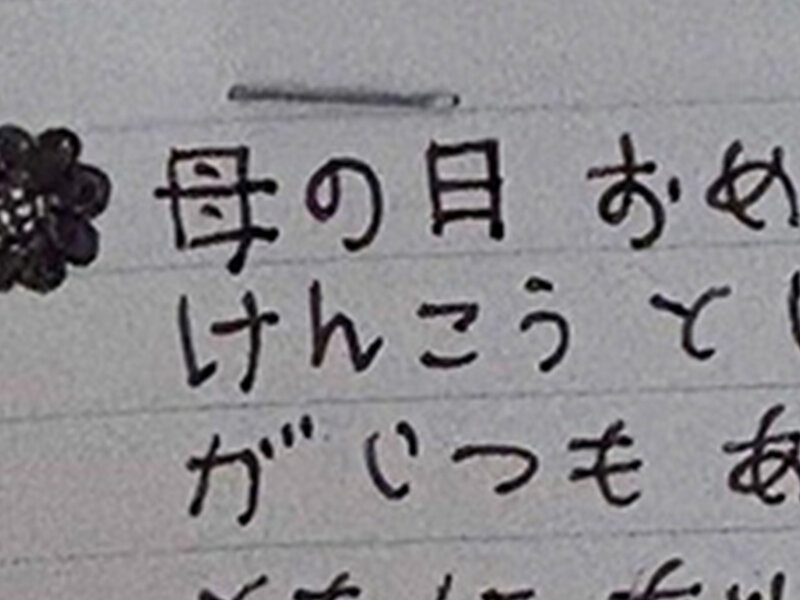 母の日 おめ
けんこう と
が いつも あ